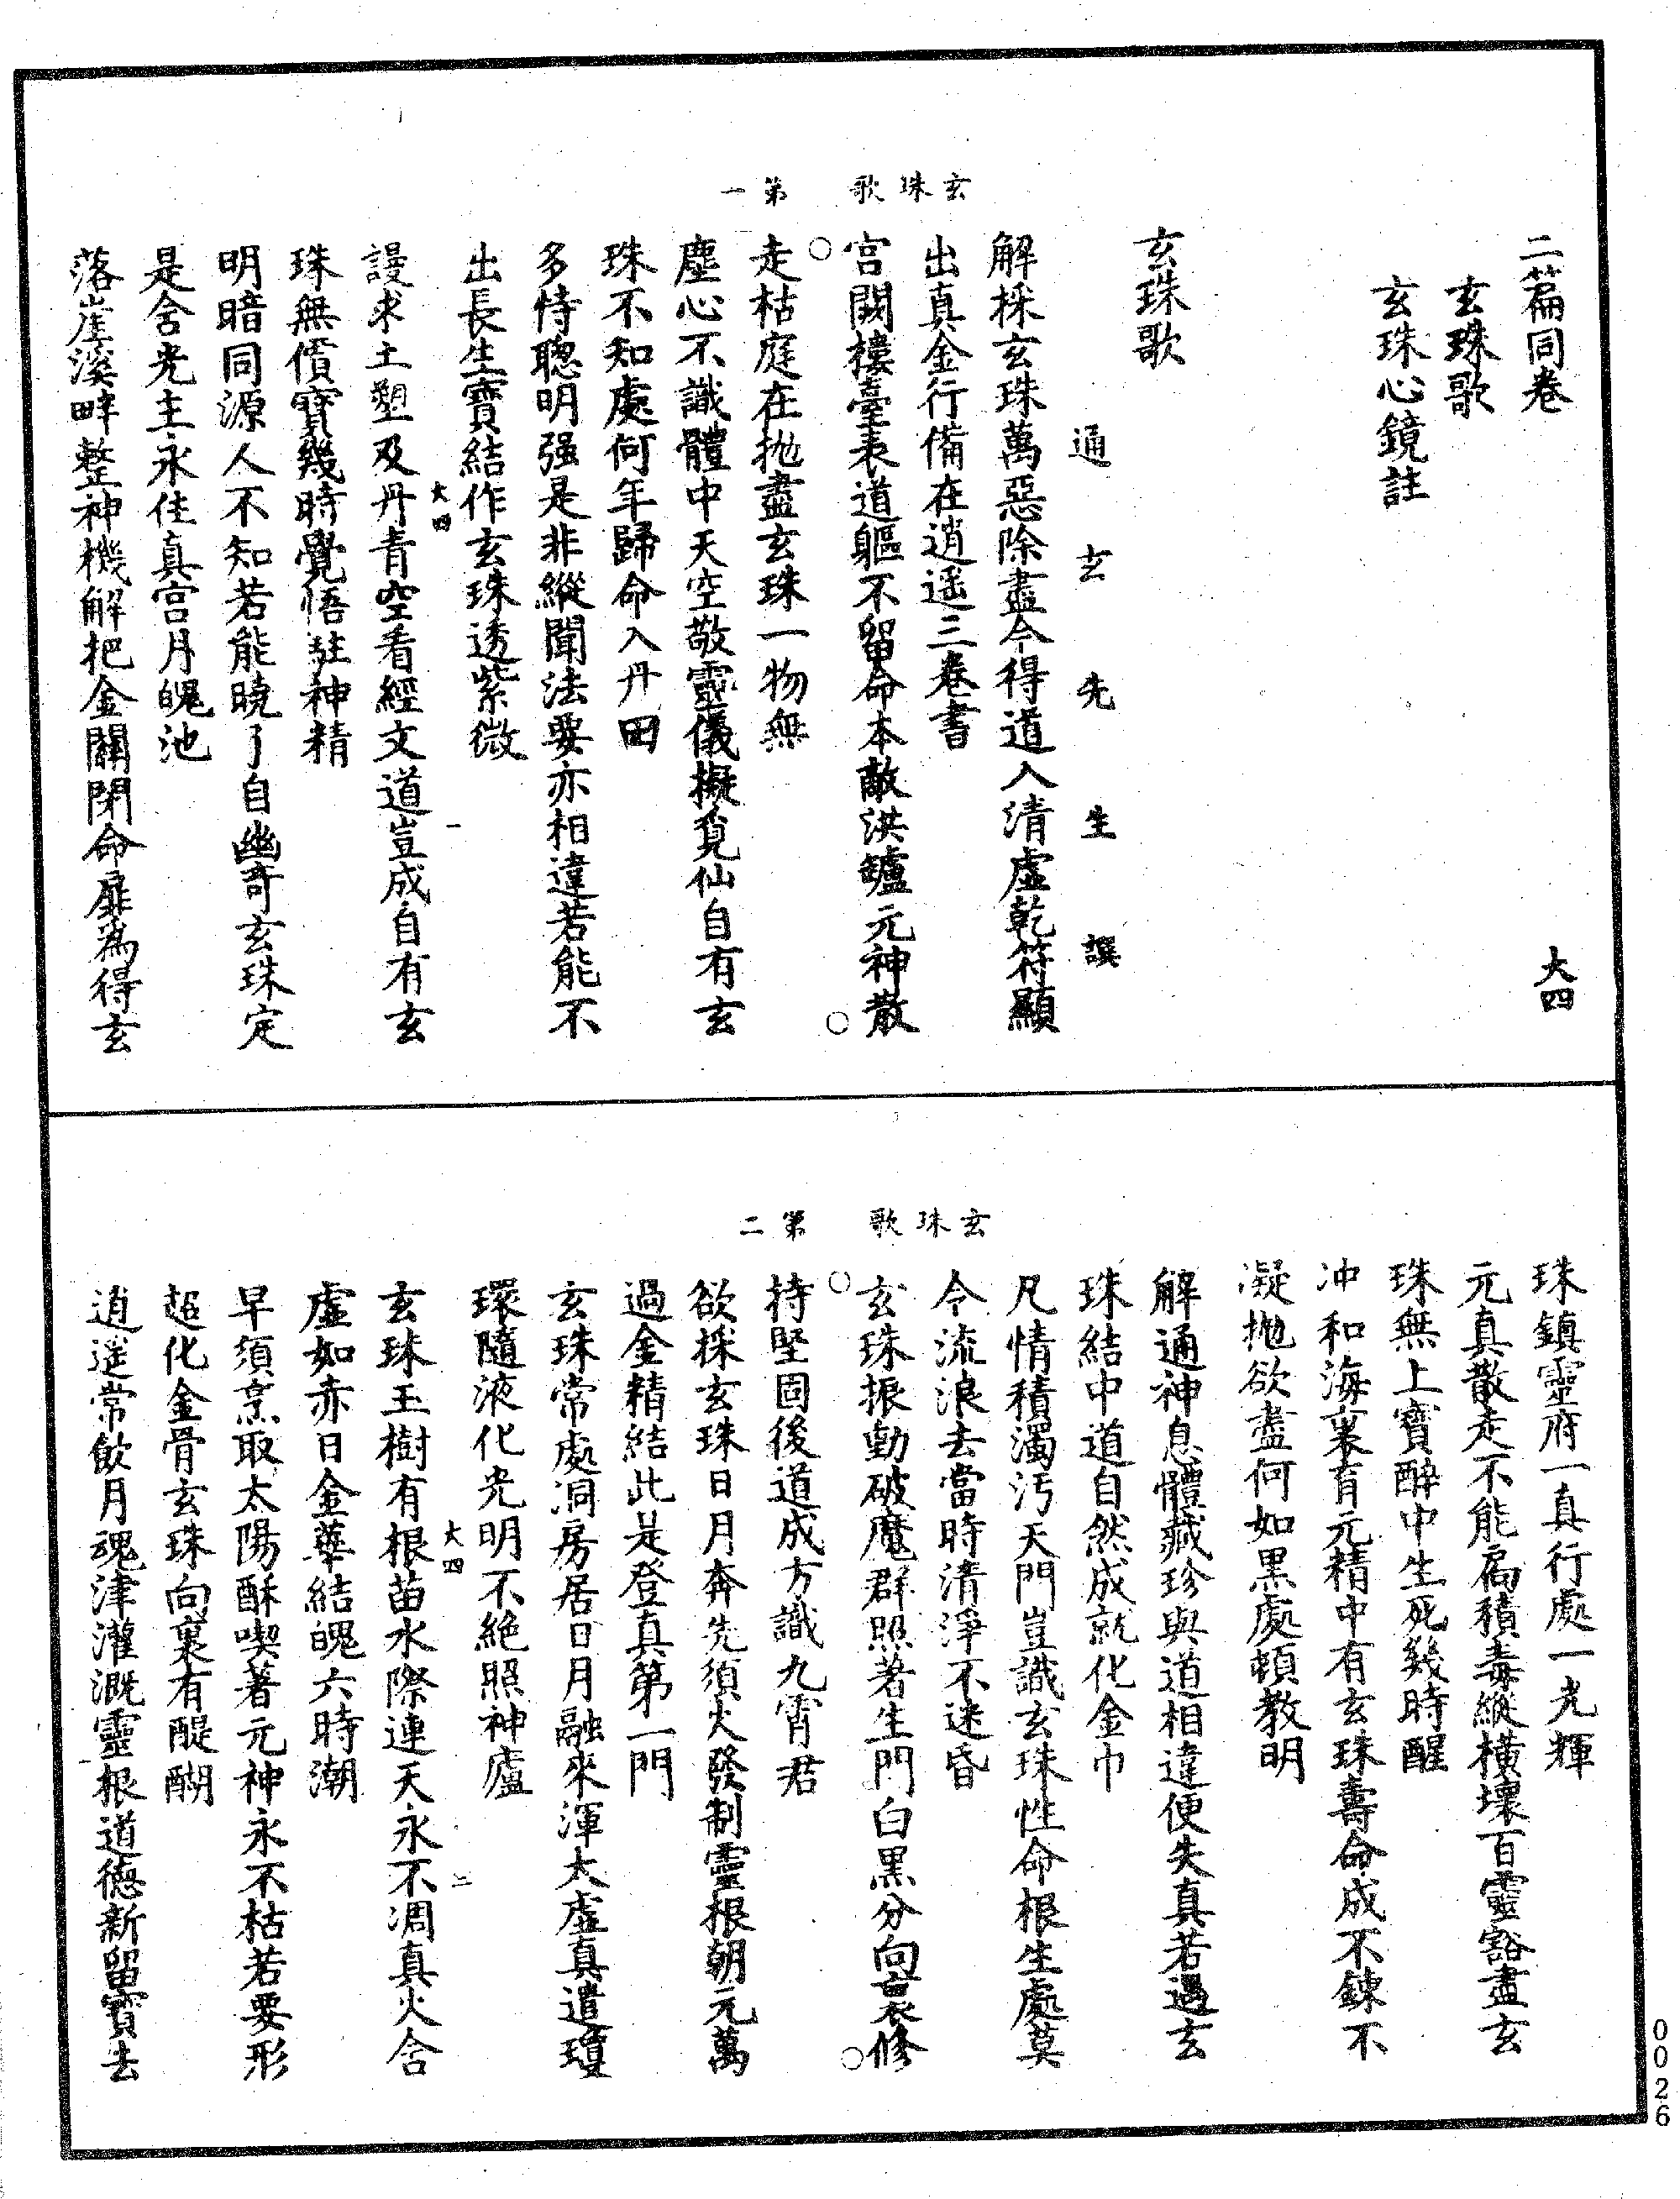 二篇同卷
大四
玄珠歌
玄珠心鏡註
玄珠歌
通玄先生譔
解採玄珠萬惡除盡令得道入清虛乾符顯
出真金行備在逍遥三卷書
宫闕樓臺表道軀不留命本敵洪鑪元神散
玄珠歌　第一
走枯庭在抛盡玄珠一物無
塵心不識體中天空敬靈儀擬覓仙自有玄
珠不知處何年歸命入丹田
多恃聰明强是非縱聞法要亦相違若能不
出長生寶結作玄珠透紫微
大四
一
謾求土塑及丹青空看經文道豈成自有玄
珠無價寶幾時覺悟駐神精
明暗同源人不知若能曉了自幽奇玄珠定
是含光主永住真宫月魄池
落崖溪畔整神機解把金關閉命扉為得玄
珠鎮靈府一真行處一光輝
元真散走不能扃積毒縱横壞百靈豁盡玄
珠無上寶醉中生死幾時醒
冲和海裏育元精中有玄珠壽命成不鍊不
凝抛欲盡何如黑處頓教明
解通神息體藏珍與道相違便失真若遇玄
珠結中道自然成就化金巾
凡情積濁汚天門豈識玄珠性命根生處莫
令流浪去當時清淨不迷昏
玄珠振動破魔群照著生門白黑分向裏修
玄珠歌　第二
持堅固後道成方識九霄君
欲採玄珠日月奔先須火發制靈根朝元萬
過金精結此是登真第一門
玄珠常處洞房居日月融來渾太虛真遣瓊
環隨液化光明不絶照神廬
大四
二
玄珠玉樹有根苗水際連天永不凋真火含
虛如赤日金華結魄六時潮
早須烹取太陽酥喫著元神永不枯若要形
超化金骨玄珠向裏有醍醐
逍遥常飲月魂津灌溉靈根道德新留寶去
0026